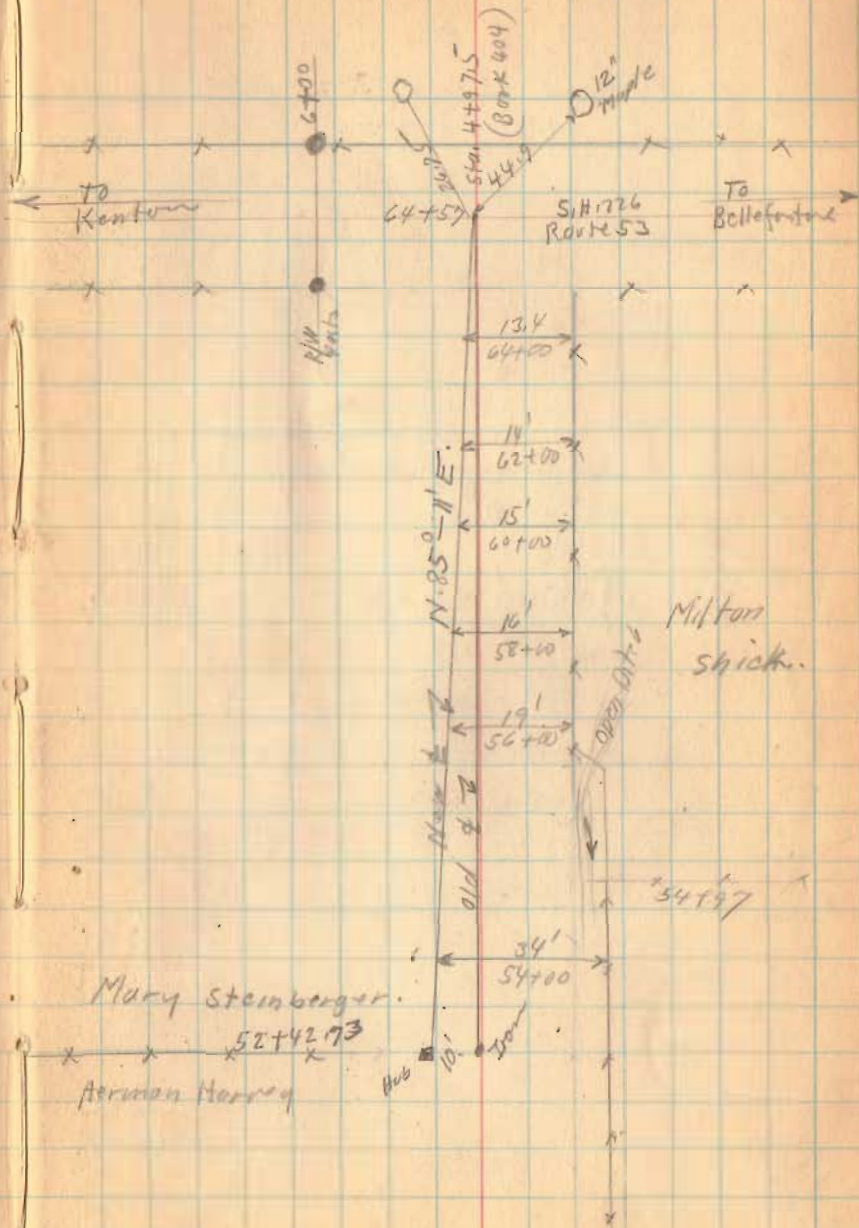 6+00
Sta. 4+97.5
(Book 404)
12"
Maple
44.9
To
Kenton
64+57
S.H. 226
Route 53
To
Bellefontaine
R/W
13.4
64+00
14'
62+00
N. 85° - 11' E.
15'
60+00
16'
58+00
Milton
Shick.
Open Ditch
19'
56+00
New ℄
Old ℄
54+97
34'
54+00
Mary Steinberger.
52+42.73
Hub
10.'
Iron
Herman Harvey